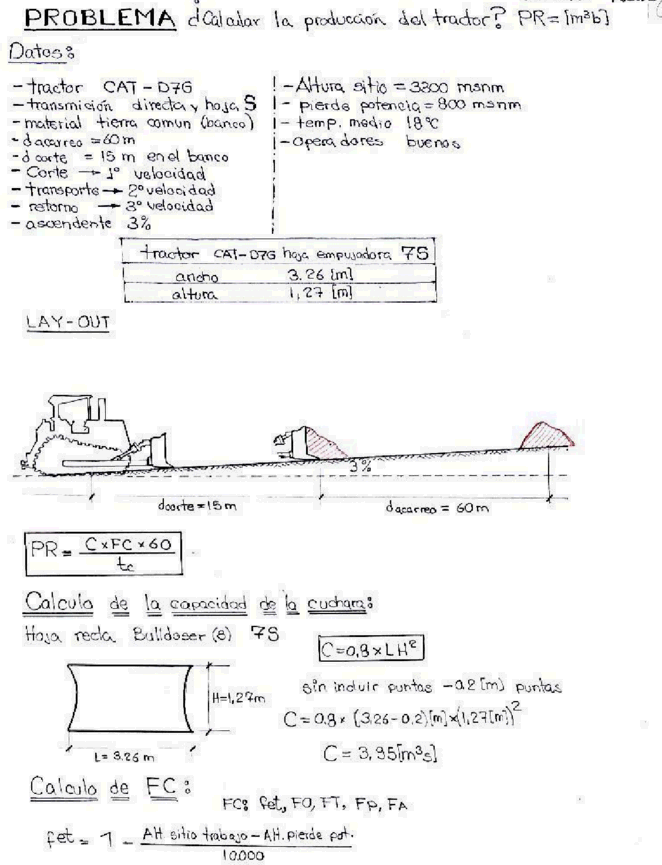 PROBLEMA ¿Calcular la producción del tractor? PR=[m³b]
Datos:
- tractor CAT-D7G
- transmisión directa y hoja S
- material tierra comun (banco)
- dacarreo = 60 m
- d corte = 15 m en el banco
- Corte → 1° velocidad
- transporte → 2° velocidad
- retorno → 3° velocidad
- ascendente 3%
- Altura sitio = 3300 msnm
- pierde potencia = 800 msnm
- temp. medio 18°C
- Operadores buenos
tractor CAT-D7G hoja empujadora 7S
ancho 3.26 [m]
altura 1,27 [m]
LAY-OUT
3%
dcorte = 15 m
dacarreo = 60 m
PR = C x FC x 60 / tc
Calculo de la capacidad de la cuchara:
Hoja recta Bulldoser (8) 7S
C=0,8 x LH²
H=1,27m
L= 3.26 m
sin incluir puntas -0.2 [m] puntas
C = 0.8 x (3.26-0.2)[m] x (1,27[m])²
C = 3,95[m³s]
Calculo de FC:
FC: fet, FO, FT, Fp, FA
fet = 1 - AH sitio trabajo - AH. pierde pot. / 10.000